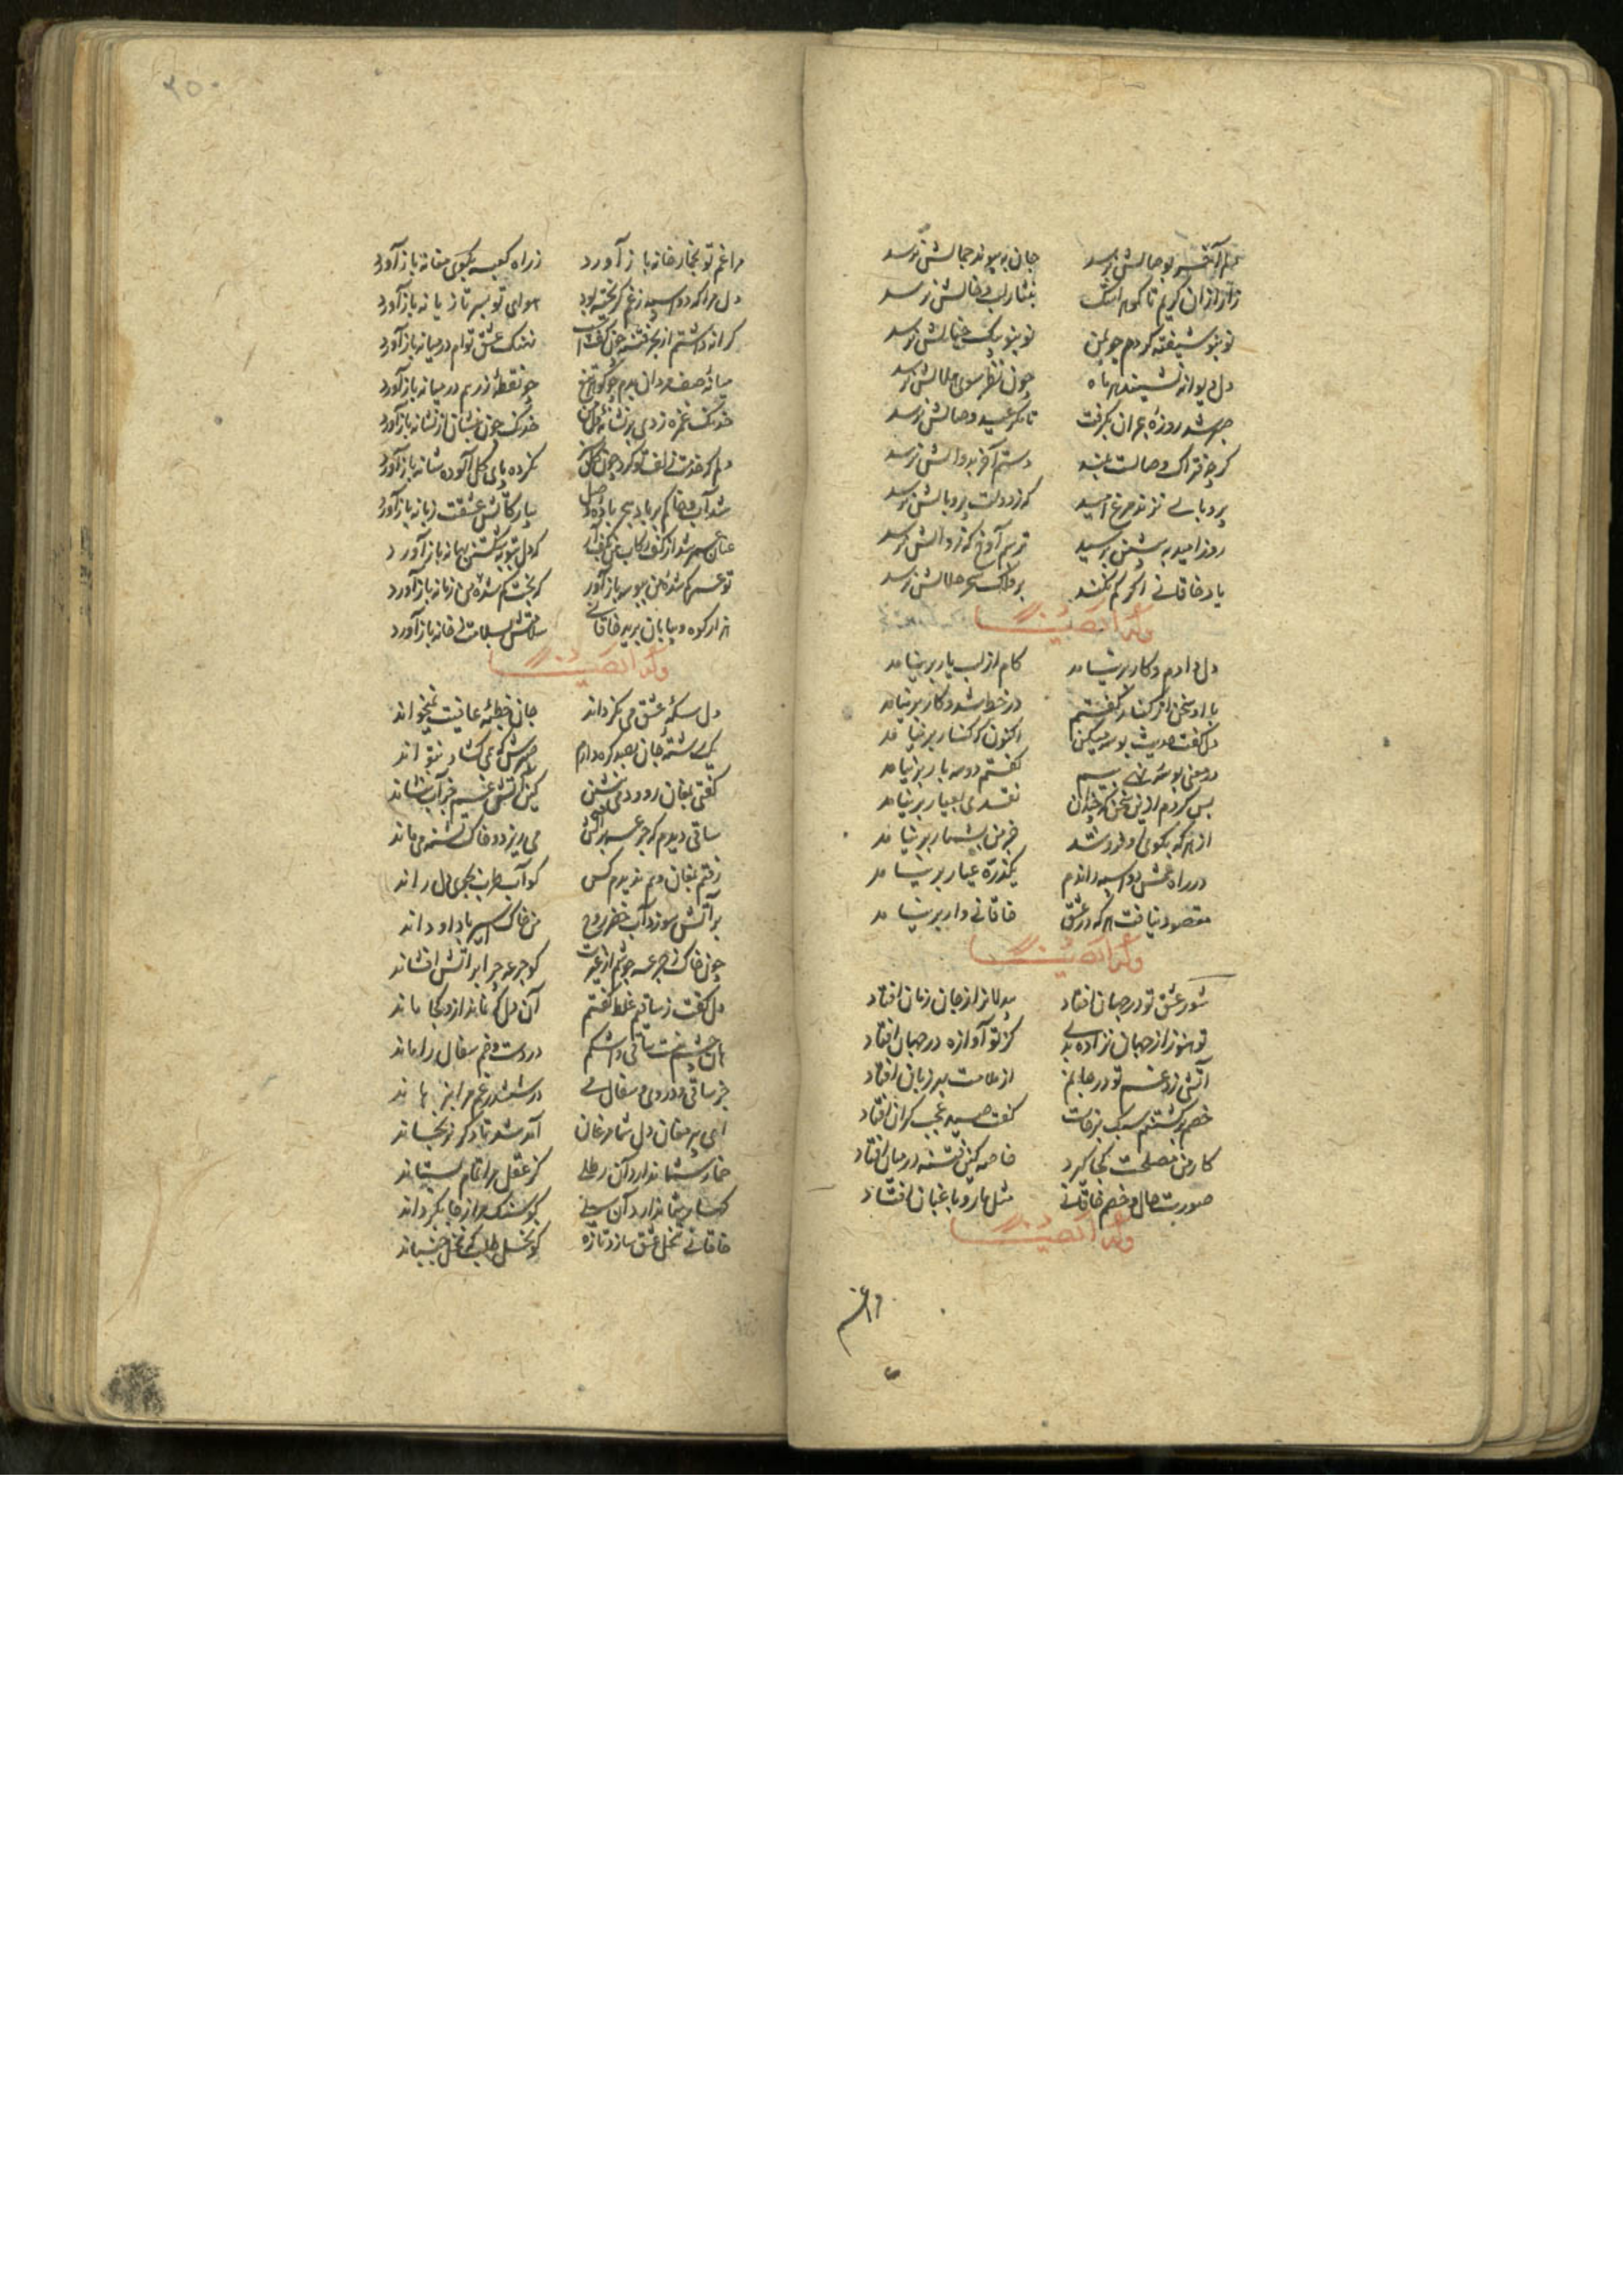 دلم آخر بوصالش برسد جان به پیوند جمالش نرسد
زار ازان کریم تا کوهر اشک بنثار لب و خالش نرسد
نو بنو شیفته کردم چو بمن نو بنو پیک خیالش نرسد
دل دیوانه بشیبد هر ماه چون نظر سوی هلالش نرسد
روزه هجران بکرفت تا مکر عید وصالش نرسد
کرچه فتراک وصالست بلند دستم آخر بدوالش نرسد
پر و بالی نزند مرغ امید که ز دولت پر و بالش نرسد
روز امید به پیشین برسید ترسم آوخ که زوالش نرسد
یاد خاقانی اگر کم نکند بر فلک سحر حلالش نرسد
وله ایضا
دل دادم و کار بر نیامد کام از لب یار بر نیامد
با او سخن از کنار کفتم در خط شد و کار بر نیامد
دل کفت حدیث بوسه میکن اکنون که کنار بر نیامد
در معنی بوسه تهی هم کفتم دو سه بار بر نیامد
بس کردم ازین سخن که چندان نقدی بعیار بر نیامد
از هر که بکوی او فرو شد جز من بشمار بر نیامد
در راه عشقش دو اسبه راندم یکذره غبار بر نیامد
مقصود نیافت هر که در عشق خاقانی وار بر نیامد
وله ایضا
شور عشق تو در جهان افتاد بیدلانرا ز جان زیان افتاد
تو هنوز از جهان نزاده بدی کز تو آوازه در جهان افتاد
آتشی زد غم تو در جانم از ملامت بر زبان افتاد
خصم بر کشتنم سبک برخاست کفت صیدی عجب کران افتاد
کار من مصلحت کجا گیرد خاصه کین فتنه در میان افتاد
صورت حال و خصم خاقانی مثل مار و باغبان افتاد
وله ایضا
مرا غم
۲۵۰
مرا غم تو بخمارخانه باز آورد ز راه کعبه بکوی مغانه باز آورد
دل مرا که دو اسبه ز غم کریخته بود هوای تو بسر تازیانه باز آورد
کرانه داشتم از بحر فتنه چون کشتی نهنک عشق توام در میانه باز آورد
میانه صف مردان بدم چو کوهر تیغ چو نقطه زرهم در میانه باز آورد
خدنک غمزه زدی بر نشانه دل من خدنک خون بنشان از نشانه باز آورد
دلم که خدمت زلف تو کرد چون کل نکرده پای کل آلوده شانه باز آورد
شد آب وصالم بباد هجر بیار کآتش عشقت زبانه باز آورد
عنان عمر شد از کف رکاب می بکف آر که دل بتوبه شکستن بهانه باز آورد
تو عمر کم شده من ببوسه باز آور که بخت کم شده من زمانه باز آورد
هزار کوه و بیابان برید خاقانی سلامتش بسلامت بخانه باز آورد
وله ایضا
دل سکه عشق می نکرداند جان خطبه عافیت نمیخواند
یک رشته جان بصد کره دارم صبرش کره‌ی کشاد نتواند
کفتی بمغان رو و دمی بنشین کین آتش غم جز آب ننشاند
ساقی دیدم که جرعه بر آتش می ریزد و خاک تشنه می ماند
رفتم بمغان و هم ندیدم کس کو آب طرب بجوی دل راند
بر آتش سوزد آب خضر و من من خاک اسیر باد او داند
چون خاک ز جرعه جوشم از غیرت کو جرعه چرا بر آتش افشاند
دل کفت ز ساقیم غلط کفتم آن دل که نماند ازو کجا ماند
هان چشم منست ساقی و اشکم دردست و رخم سفال را ماند
جز ساقی و دردی و سفال می در ششدر غم مرا برهاند
ای پیر مغان دل شما مرغان آمد شد ما دکر نرنجاند
خمار شما ندارد آن رطلی کز عقل مرا تمام بستاند
کهسار شما ندارد آن سیلی کو سنک مرا ز جا بکرداند
خاقانی نخل عشق سازد تازه کو نخل طلب که نخل جنباند